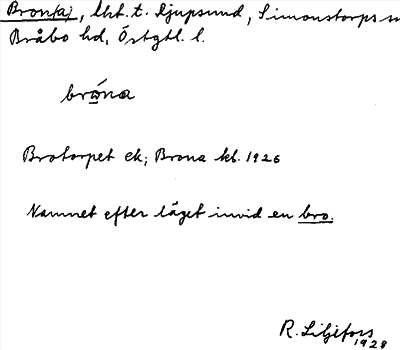 Bron(a), lht. t. Djupsund, Simonstorps sn
Bråbo hd, Östgtl. l.
bróna
Brotorpet ek; Brona kk. 1926
Namnet efter läget invid en bro.
R. Liljefors
1928